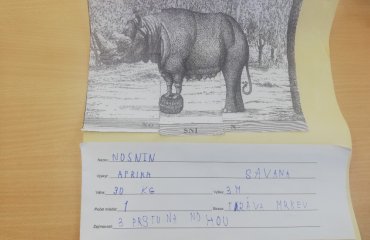 NO SNÍ N
Název: NOSNIN
Výskyt: AFRIKA SAVANA
Váha: 30 KG Výška: 3 M
Počet mláďat: 1 Strava: TRÁVA MRKEV
Zajímavost: 3 PRSTU NA NOHOU